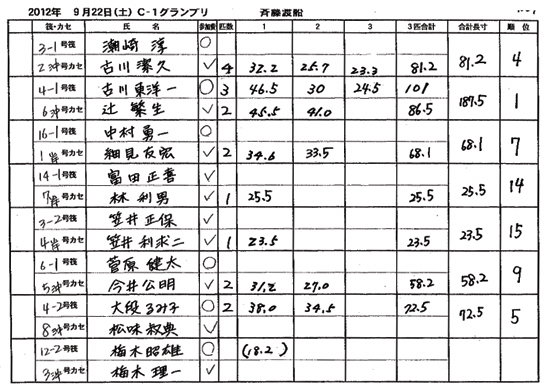 2012年 9月22日(土) C-1グランプリ 斉藤渡船
筏・カセ 氏 名 参加費 匹数 1 2 3 3匹合計 合計長寸 順 位
3-1号筏 潮崎 淳 ○
2沖号カセ 古川 潔久 ✓ 4 32.2 25.7 23.3 81.2 81.2 4
4-1号筏 古川 東洋一 ○ 3 46.5 30 24.5 101
6沖号カセ 辻 繁生 ✓ 2 45.5 41.0 86.5 187.5 1
16-1号筏 中村 勇一 ○
1岸号カセ 細見 友宏 ✓ 2 34.6 33.5 68.1 68.1 7
14-1号筏 富田 正喜 ✓
7岸号カセ 林 利男 ✓ 1 25.5 25.5 25.5 14
3-2号筏 笠井 正保 ✓
4岸号カセ 笠井 利求二 ✓ 1 23.5 23.5 23.5 15
6-1号筏 菅原 健太 ○
5沖号カセ 今井 公明 ✓ 2 31.2 27.0 58.2 58.2 9
4-2号筏 大段 るみ子 ○ 2 38.0 34.5 72.5 72.5 5
8沖号カセ 松味 叔典 ✓
12-2号筏 梅木 昭雄 ○ (18.2)
3沖号カセ 梅木 理一 ✓